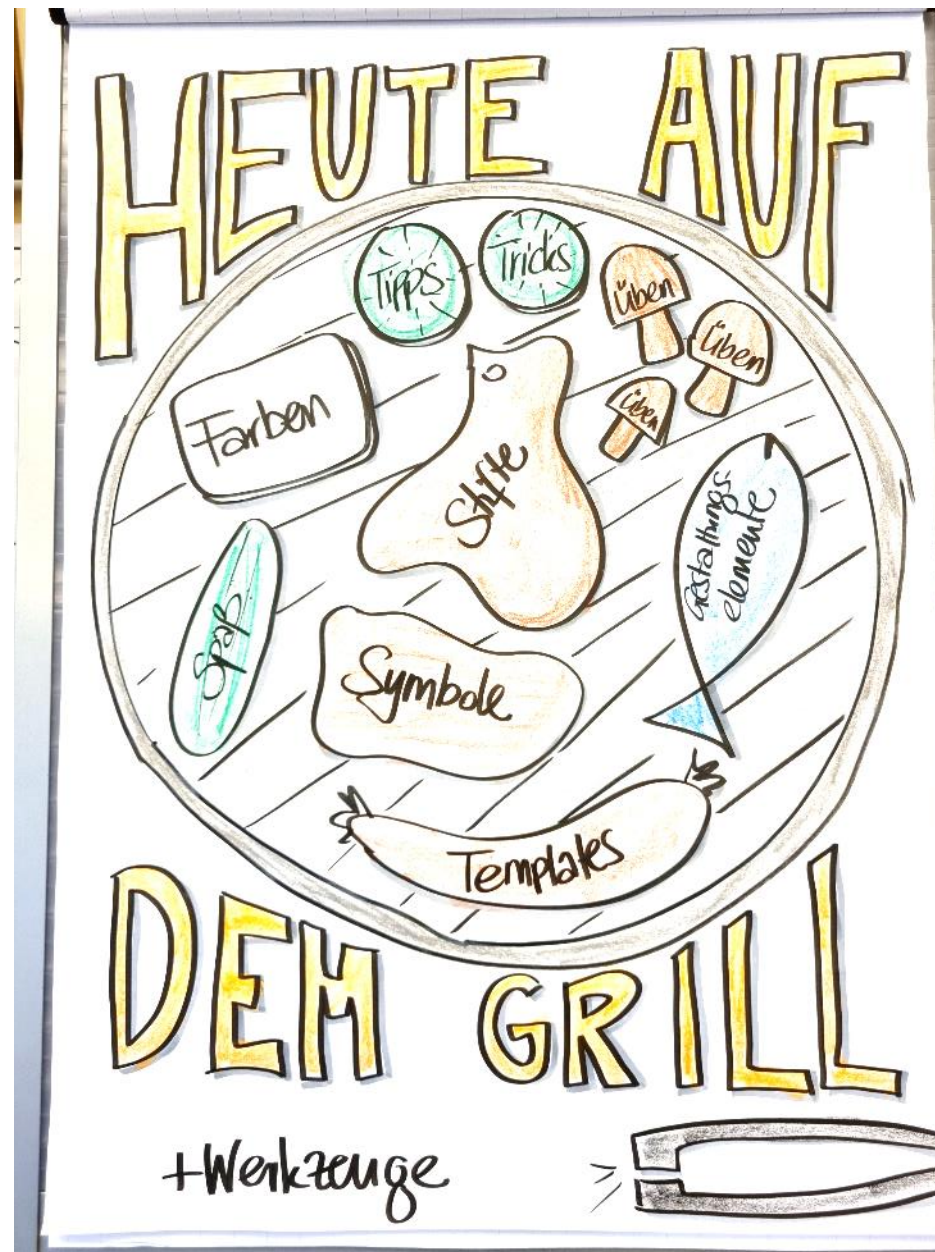 HEUTE AUF
Tipps
Tricks
Üben
Üben
Üben
Farben
Stifte
Gestaltungs-
elemente
Symbole
Templates
DEM GRILL
+Werkzeuge